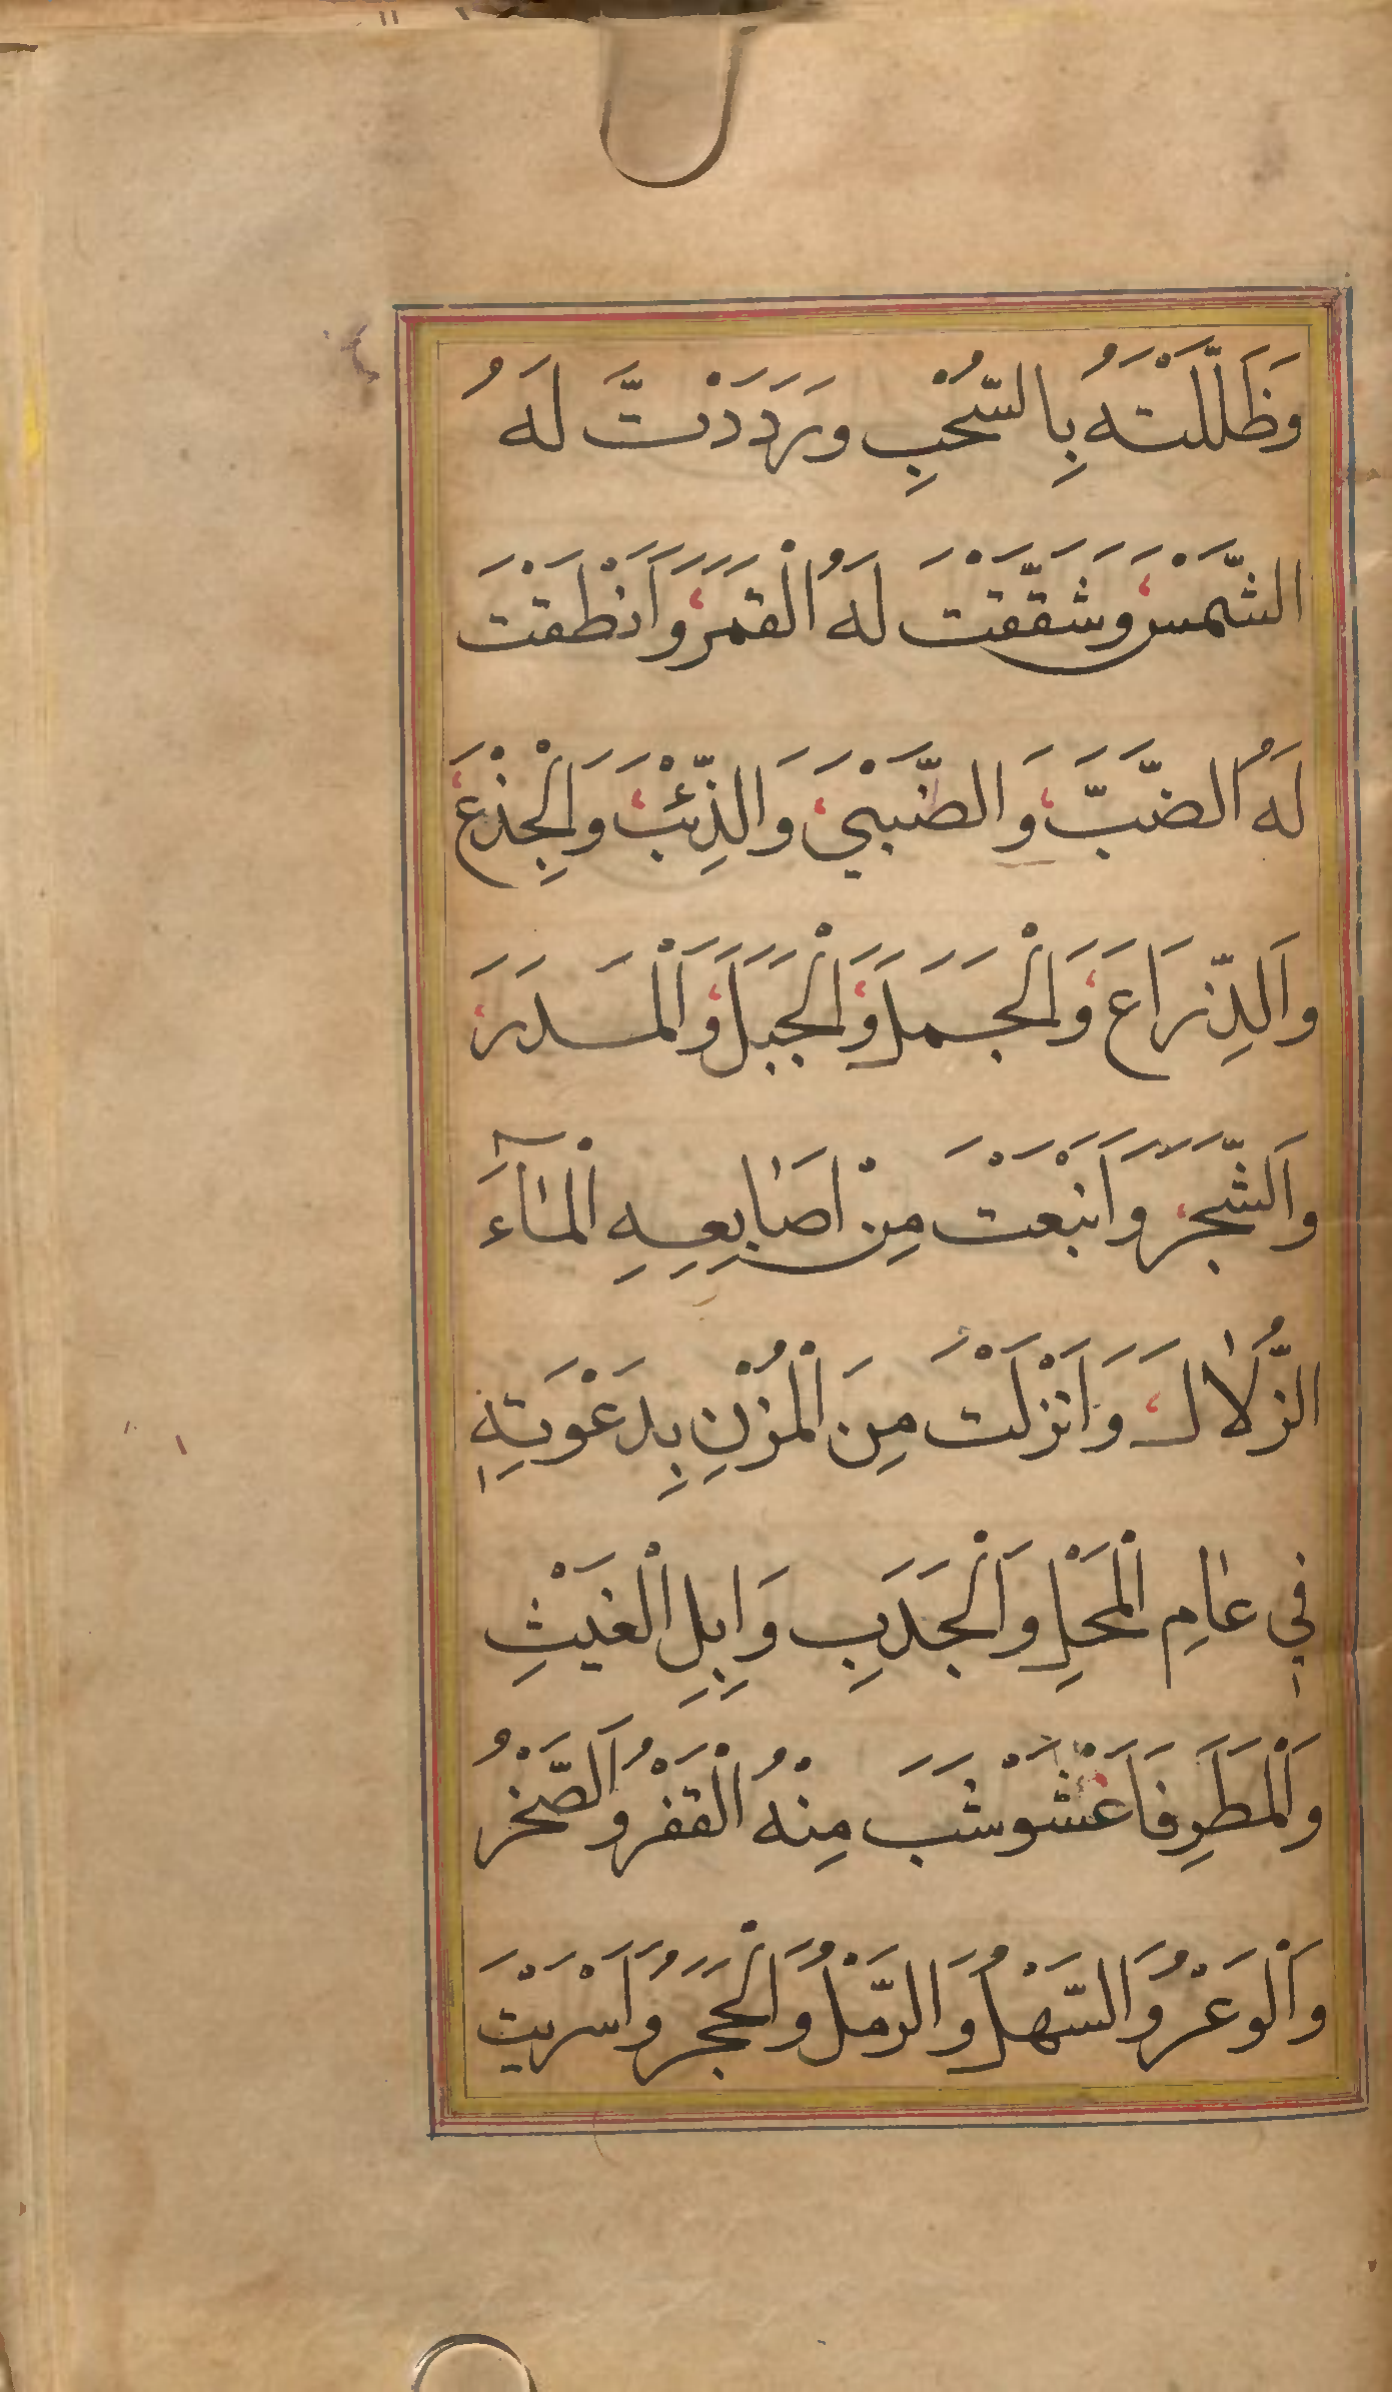 وَظَلَّلْتَهُ بِالسُّحُبِ وَرَدَدْتَّ لَهُ
الشَّمْسَ وَشَقَّقْتَ لَهُ الْقَمَرَ وَاَنْطَقْتَ
لَهُ الضَّبَّ وَالظَّبْيَ وَالذِّئْبَ وَالْجِذْعَ
وَالذِّرَاعَ وَالْجَمَلَ وَالْجَبَلَ وَالْمَدَرَ
وَالشَّجَرَ وَاَنْبَعْتَ مِنْ اَصَابِعِهِ الْمَآءَ
الزُّلَالَ وَاَنْزَلْتَ مِنَ الْمُزْنِ بِدَعْوَتِهٖ
فِي عَامِ الْمَحْلِ وَالْجَدَبِ وَابِلِ الْغَيْثِ
وَالْمَطَرِ فَاعْشَوْشَبَ مِنْهُ الْقَفْرُ وَالصَّخْرُ
وَالْوَعْرُ وَالسَّهْلُ وَالرَّمْلُ وَالْحَجَرُ وَاَسْرَيْتَ